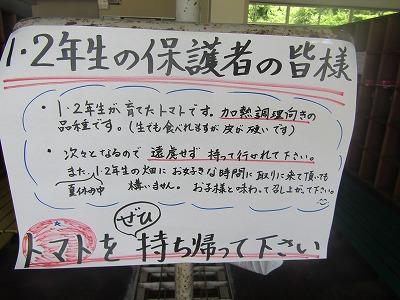 1・2年生の保護者の皆様
・1・2年生が育てたトマトです。加熱調理向きの
品種です。(生でも食べれますが 皮が硬いです)
・次々となるので 遠慮せず 持って行かれて下さい。
また、1・2年生の畑に お好きな時間に取りに来て頂いても
夏休み中 構いません。お子様と味わって召し上がって下さい。
ぜひ
トマトを 持ち帰って下さい